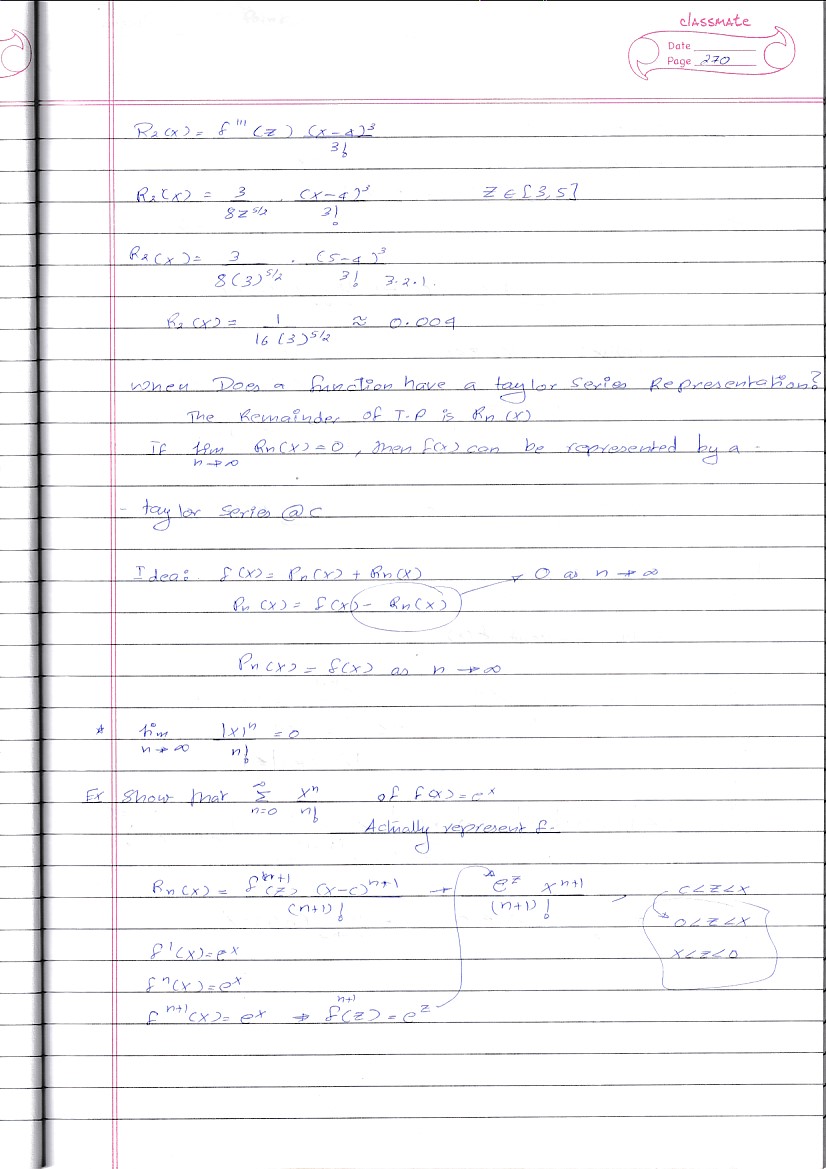 classmate
Date
Page 270
R₂(x) = f'''(z) (x-4)³/3!
R₂(x) = 3/8z^5/2 · (x-4)³/3! z ∈ [3,5]
R₂(x) = 3/8(3)^5/2 · (5-4)³/3! 3·2·1.
R₂(x) = 1/16(3)^5/2 ≈ 0.004
When Does a function have a taylor Series Representation?
The Remainder of T.P is Rn(x)
If lim n→∞ Rn(x)=0, then f(x) can be represented by a -
- taylor series @c
Idea: f(x) = Pn(x) + Rn(x) → 0 as n→∞
Pn(x) = f(x) - Rn(x)
Pn(x) = f(x) as n→∞
* lim n→∞ |x|ⁿ/n! = 0
Ex Show that ∞Σn=0 xⁿ/n! of f(x)=eˣ
Actually represent f.
Rn(x) = fⁿ⁺¹(z) (x-c)ⁿ⁺¹/(n+1)! → e^z xⁿ⁺¹/(n+1)! c<z<x
0<z<x
f'(x)=eˣ x<z<0
fⁿ(x)=eˣ
fⁿ⁺¹(x)=eˣ → fⁿ⁺¹(z)=e^z